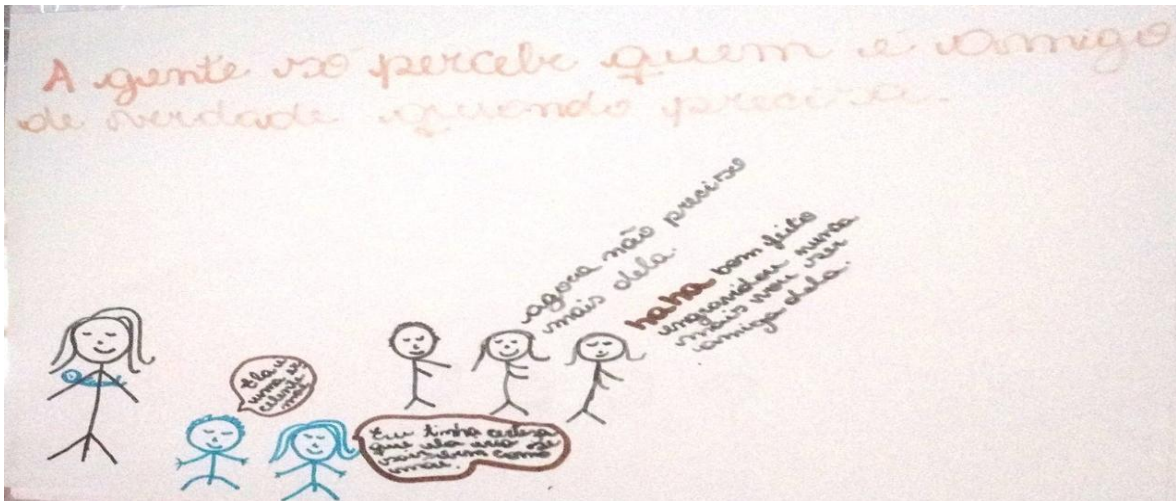 A gente só percebe quem é amigo
de verdade quando precisa.
agora não preciso
mais dela.
haha bem feito
engravidou nunca
mais vou ser
amiga dela.
Ela é
uma ex
celente
mãe
Eu tinha certeza
que ela iria se
sair bem como
mãe.